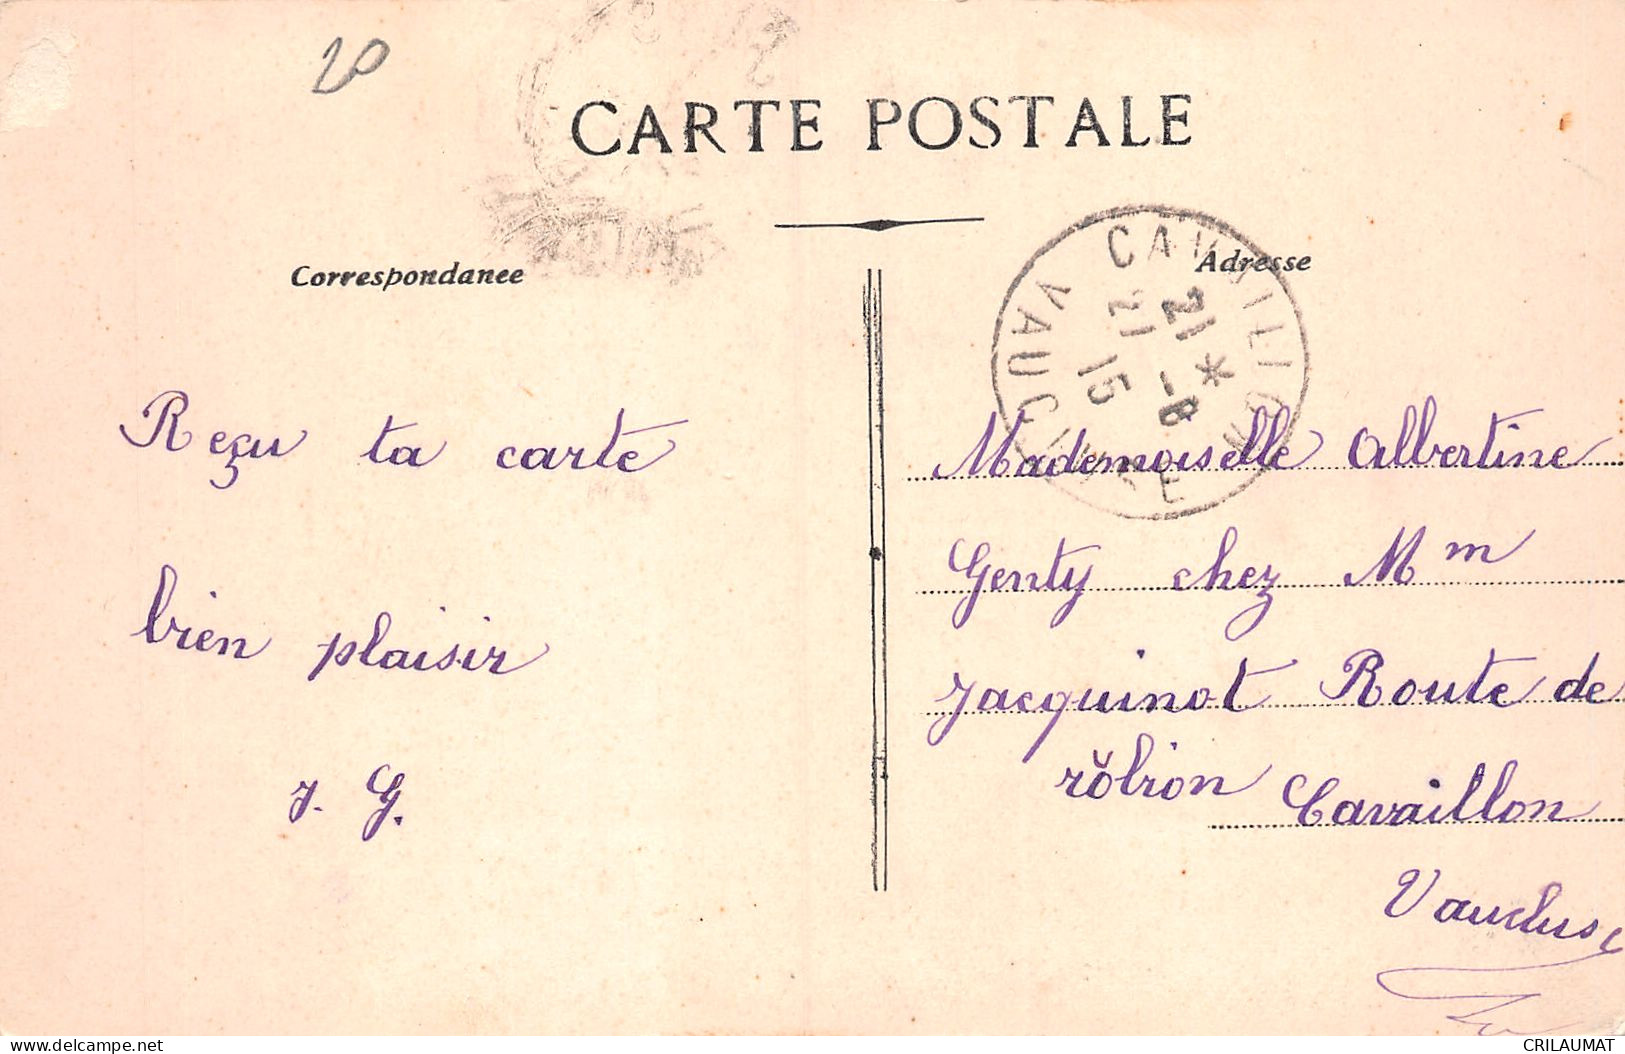 20
CARTE POSTALE
Correspondance
Adresse
CAVAILLON
21 *
21 -8
15
VAUCLUSE
Reçu ta carte
bien plaisir
J. G.
Mademoiselle Albertine
Genty chez Mm
Jacquinot Route de
rŏbion Cavaillon
Vaucluse
delcampe.net
CRILAUMAT